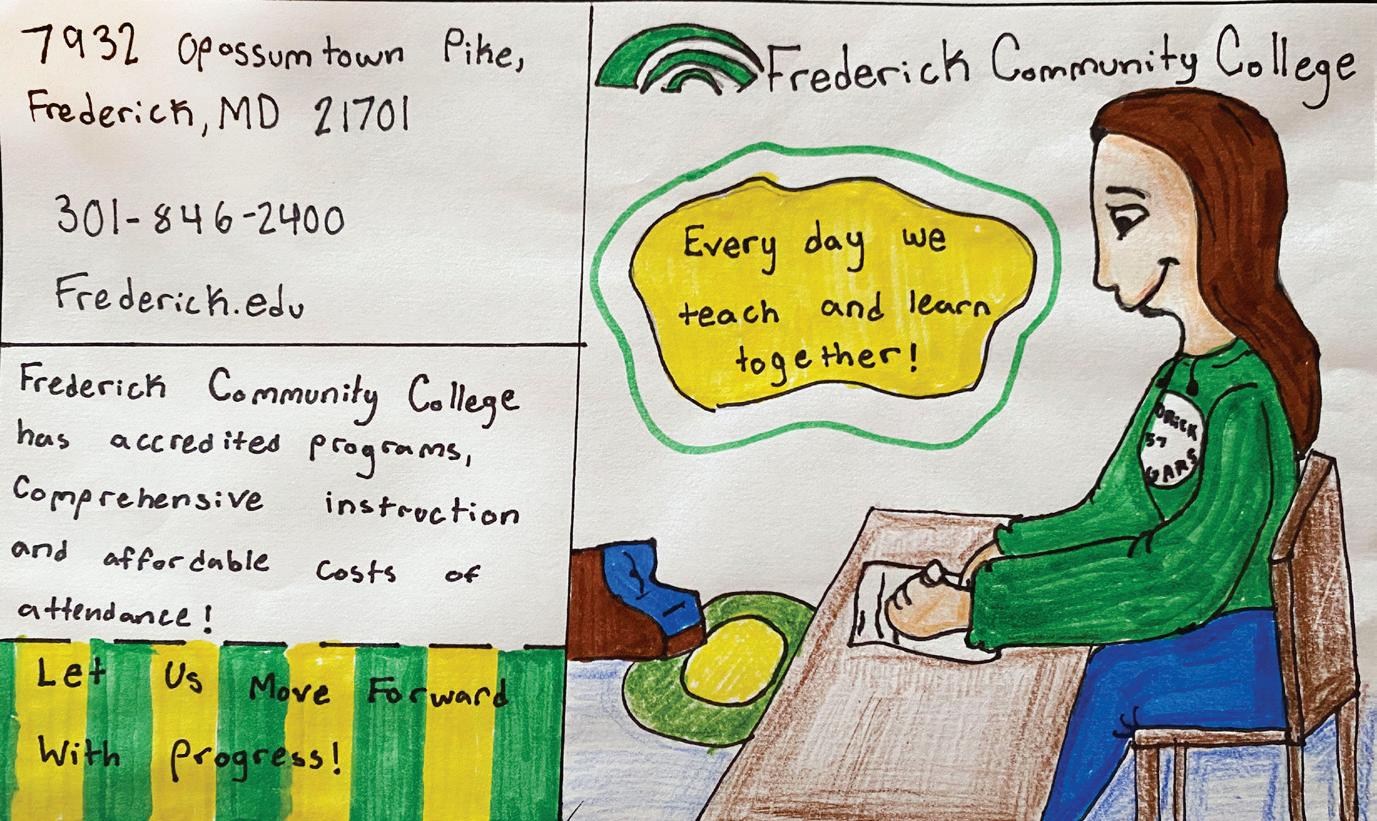 7932 Opossumtown Pike,
Frederick, MD 21701
301-846-2400
Frederick.edu
Frederick Community College
has accredited programs,
Comprehensive instruction
and affordable costs of
attendance!
Let Us Move Forward
With Progress!
Frederick Community College
Every day we
teach and learn
together!
DRICK
57
GARS